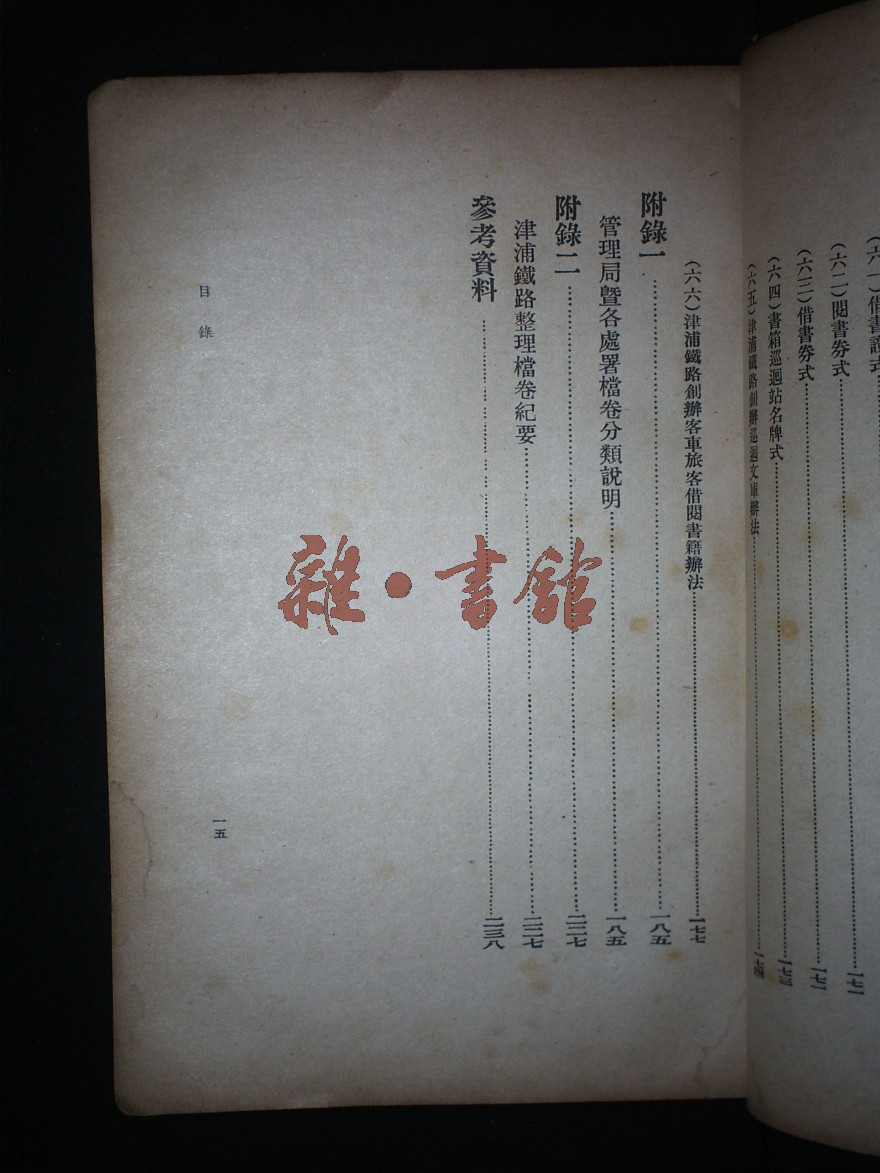 (六一)借書證式
(六二)閱書券式……一七一
(六三)借書券式……一七一
(六四)書箱巡迴站名牌式……一七三
(六五)津浦鐵路創辦巡迴文庫辦法……一七四
(六六)津浦鐵路創辦客車旅客借閱書籍辦法……一七七
附錄一……一八五
管理局暨各處署檔卷分類說明……一八五
附錄二……二二七
津浦鐵路整理檔卷紀要……二二七
參考資料……二三八
目錄
一五
雜·書館